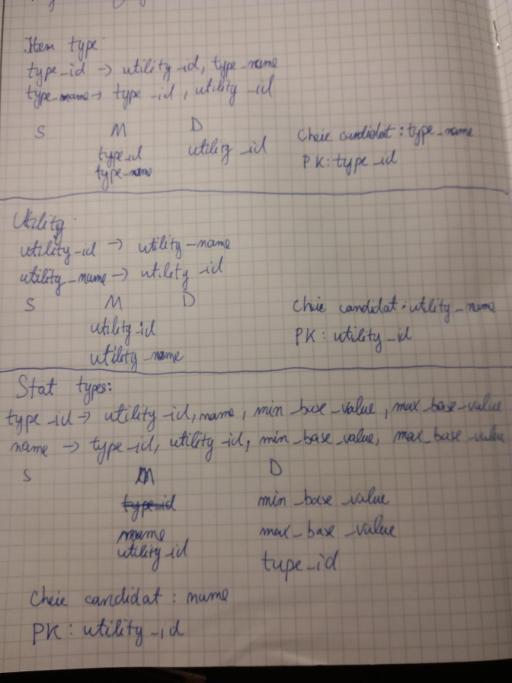 Item type:
type_id -> utility_id, type_name
type_name -> type_id, utility_id
S M D
type_id utility_id
type_name
Cheie candidat: type_name
PK: type_id
Utility:
utility_id -> utility_name
utility_name -> utility_id
S M D
utility_id
utility_name
Cheie candidat: utility_name
PK: utility_id
Stat types:
type_id -> utility_id, name, min_base_value, max_base_value
name -> type_id, utility_id, min_base_value, max_base_value
S M D
type_id min_base_value
name max_base_value
utility_id type_id
Cheie candidat: name
PK: utility_id